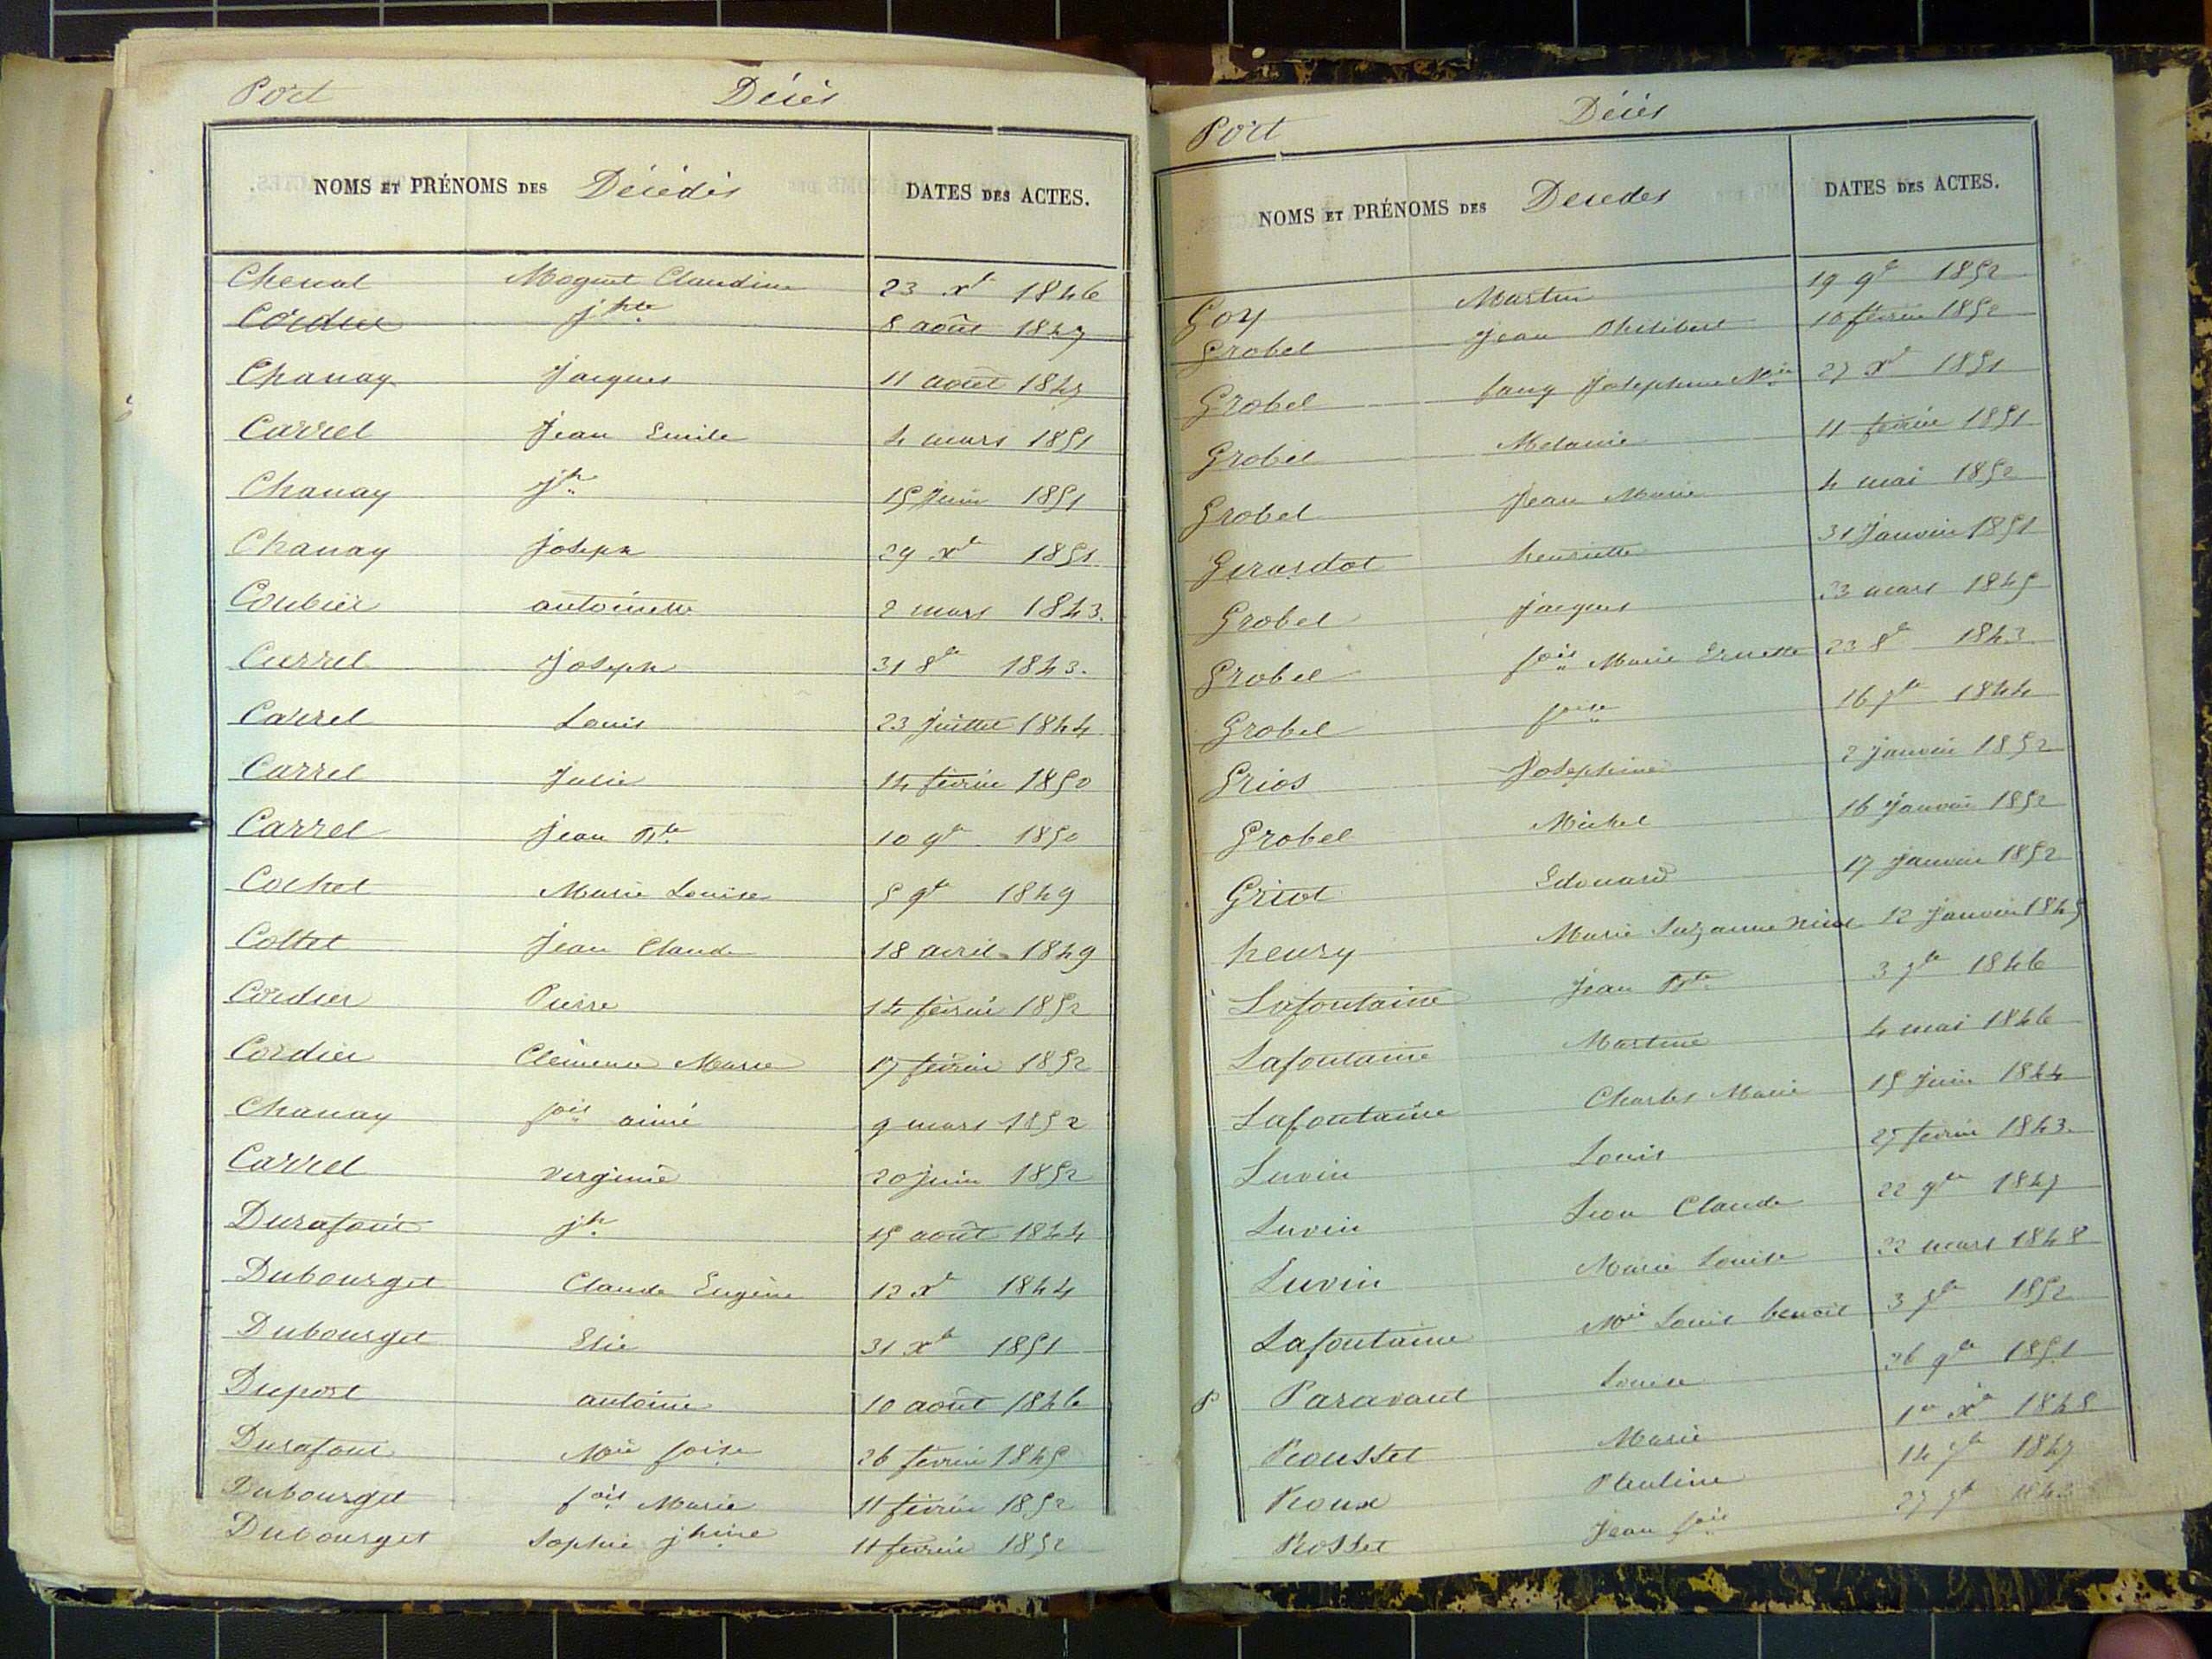 Port Décès
NOMS ET PRÉNOMS DES Décédés DATES DES ACTES.
Cheval Moguet Claudine 23 Xbre 1846
Cordier jhte 8 août 1847
Chanay Jacques 11 août 1847
Carrel Jean Emile 4 mars 1851
Chanay Jh 15 Juin 1851
Chanay Joseph 29 Xbre 1851
Coubier antoinette 2 mars 1843.
Currel Joseph 31 8bre 1843.
Carrel Louis 23 Juillet 1844
Carrel Julie 14 février 1850
Carrel Jean Bte 10 9bre 1850
Cochet Marie Louise 5 9bre 1849
Coltet Jean Claude 18 avril 1849
Cordier Pierre 14 février 1852
Cordier Clémence Marie 17 février 1852
Chanay fois aimé 9 mars 1852
Carrel virginie 20 juin 1852
Durafour jh 15 août 1844
Dubourget Claude Eugène 12 Xbre 1844
Dubourget Elie 31 Xbre 1851
Duport antoine 10 août 1846
Durafour Mie foise 26 février 1845
Dubourget fois Marie 11 février 1852
Dubourget Sophie jhine 11 février 1852
Port Décès
NOMS ET PRÉNOMS DES Decedes DATES DES ACTES.
Goy Martin 19 9bre 1852
Grobel Jean Philibert 10 février 1852
Grobel fany Josephine Mie 27 Xbre 1851
Grobel Melanie 11 février 1851
Grobel Jean Marie 4 mai 1852
Girardot henriette 31 Janvier 1851
Grobel Jacques 23 mars 1845
Grobel fois Marie Ernette 23 8bre 1843
Grobel foise 16 7bre 1844
Grios Josephine 2 janvier 1852
Grobel Michel 16 Janvier 1852
Griot Edouard 17 Janvier 1852
henry Marie Suzanne 12 Janvier 1845
Lafontaine Jean Bte 3 7bre 1846
Lafontaine Martine 4 mai 1846
Lafontaine Charles Marie 15 Juin 1844
Luvin Louis 27 février 1843.
Luvin Leon Claude 22 9bre 1847
Luvin Marie Louise 22 mars 1848
Lafontaine Mie Louis benoit 3 7bre 1852
P Paravant Louise 26 9bre 1851
Rousset Marie 1er Xbre 1848
Roux Pauline 14 7bre 1847
Rosset Jean fois 27 7bre